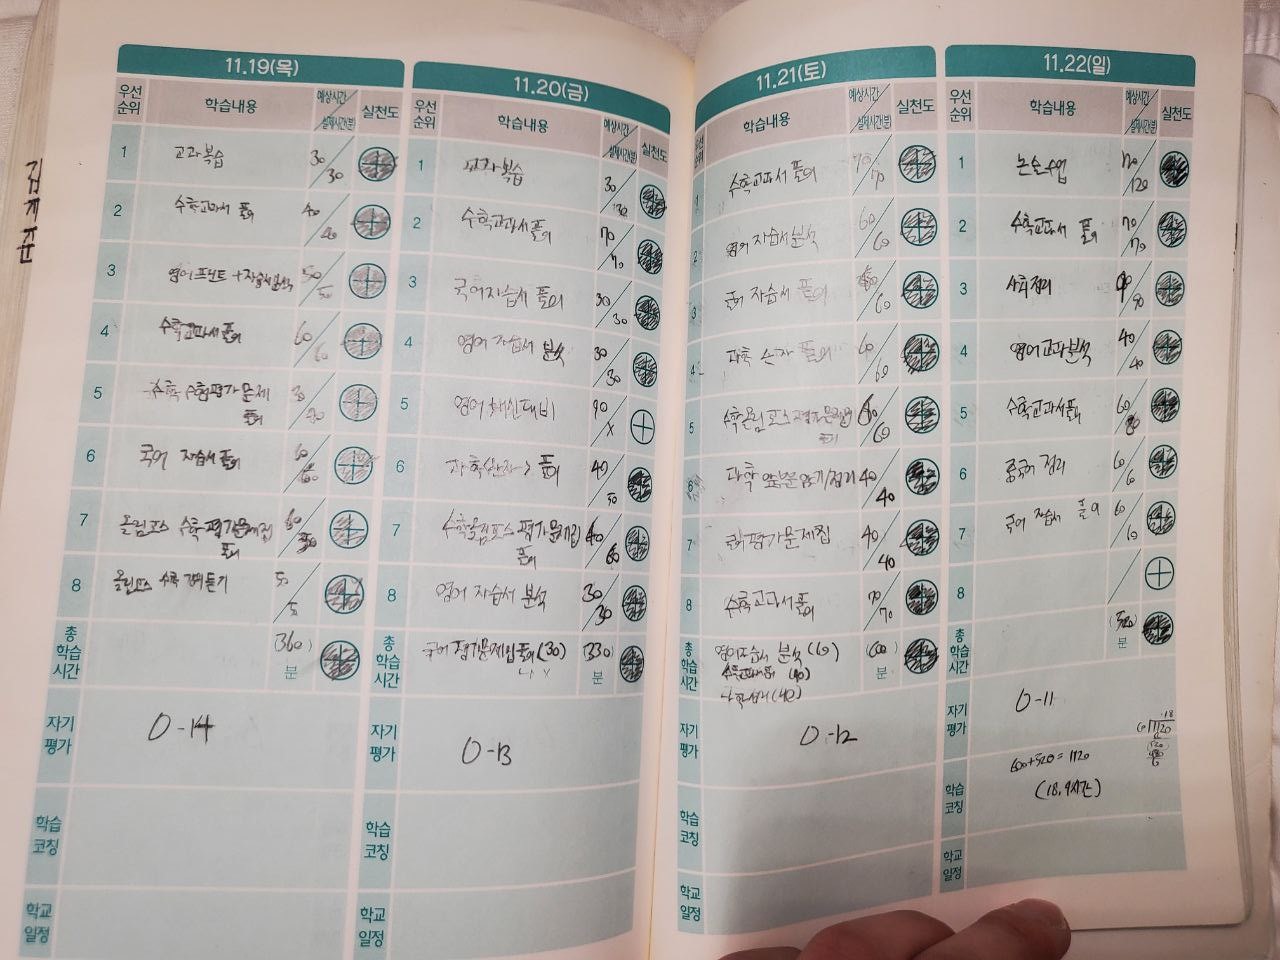 11.19(목)
우선순위 학습내용 예상시간/실제시간(분) 실천도
1 교과복습 30/30
2 수학교과서 풀이 40/40
3 영어프린트+자습서분석 50/50
4 수학교과서 풀이 60/60
5 수학 수행평가문제 풀이 30
6 국어 자습서 풀이 60/60
7 올림포스 수학평가문제집 풀이 60
8 올림포스 수학 강의듣기 5
총 학습시간 (360)분
자기평가 0-14
학습코칭
학교일정
11.20(금)
우선순위 학습내용 예상시간/실제시간(분) 실천도
1 교과복습 30/30
2 수학교과서풀이 70/70
3 국어자습서 풀이 30/30
4 영어 자습서 분석 30/30
5 영어 대비 90/x
6 과학 풀이 40/50
7 수학올림포스 평가문제집 풀이 60/60
8 영어 자습서 분석 30/30
총 학습시간 국어 평가문제집풀이(30) (330)분
자기평가 0-13
학습코칭
학교일정
11.21(토)
우선순위 학습내용 예상시간/실제시간(분) 실천도
1 수학교과서 풀이 70/70
2 영어 자습서분석 60/60
3 국어 자습서 풀이 60/60
4 과학 풀이 60/60
5 수학올림포스 평가문제집 풀이 60/60
6 과학 앞부분암기/정리 40/40
7 국어평가문제집 40/40
8 수학교과서풀이 70/70
총 학습시간 영어자습서 분석(60) (600)분
수학교과서풀이 (40)
(40)
자기평가 0-12
학습코칭
학교일정
11.22(일)
우선순위 학습내용 예상시간/실제시간(분) 실천도
1 논술수업 120/120
2 수학교과서 풀이 70/70
3 사회정리 90/90
4 영어교과분석 40/40
5 수학교과서풀이 60/80
6 중국어 정리 60/60
7 국어 자습서 풀이 60/60
8
총 학습시간 (520)분
자기평가 0-11
학습코칭 600+520=1120
(18.9시간)
학교일정